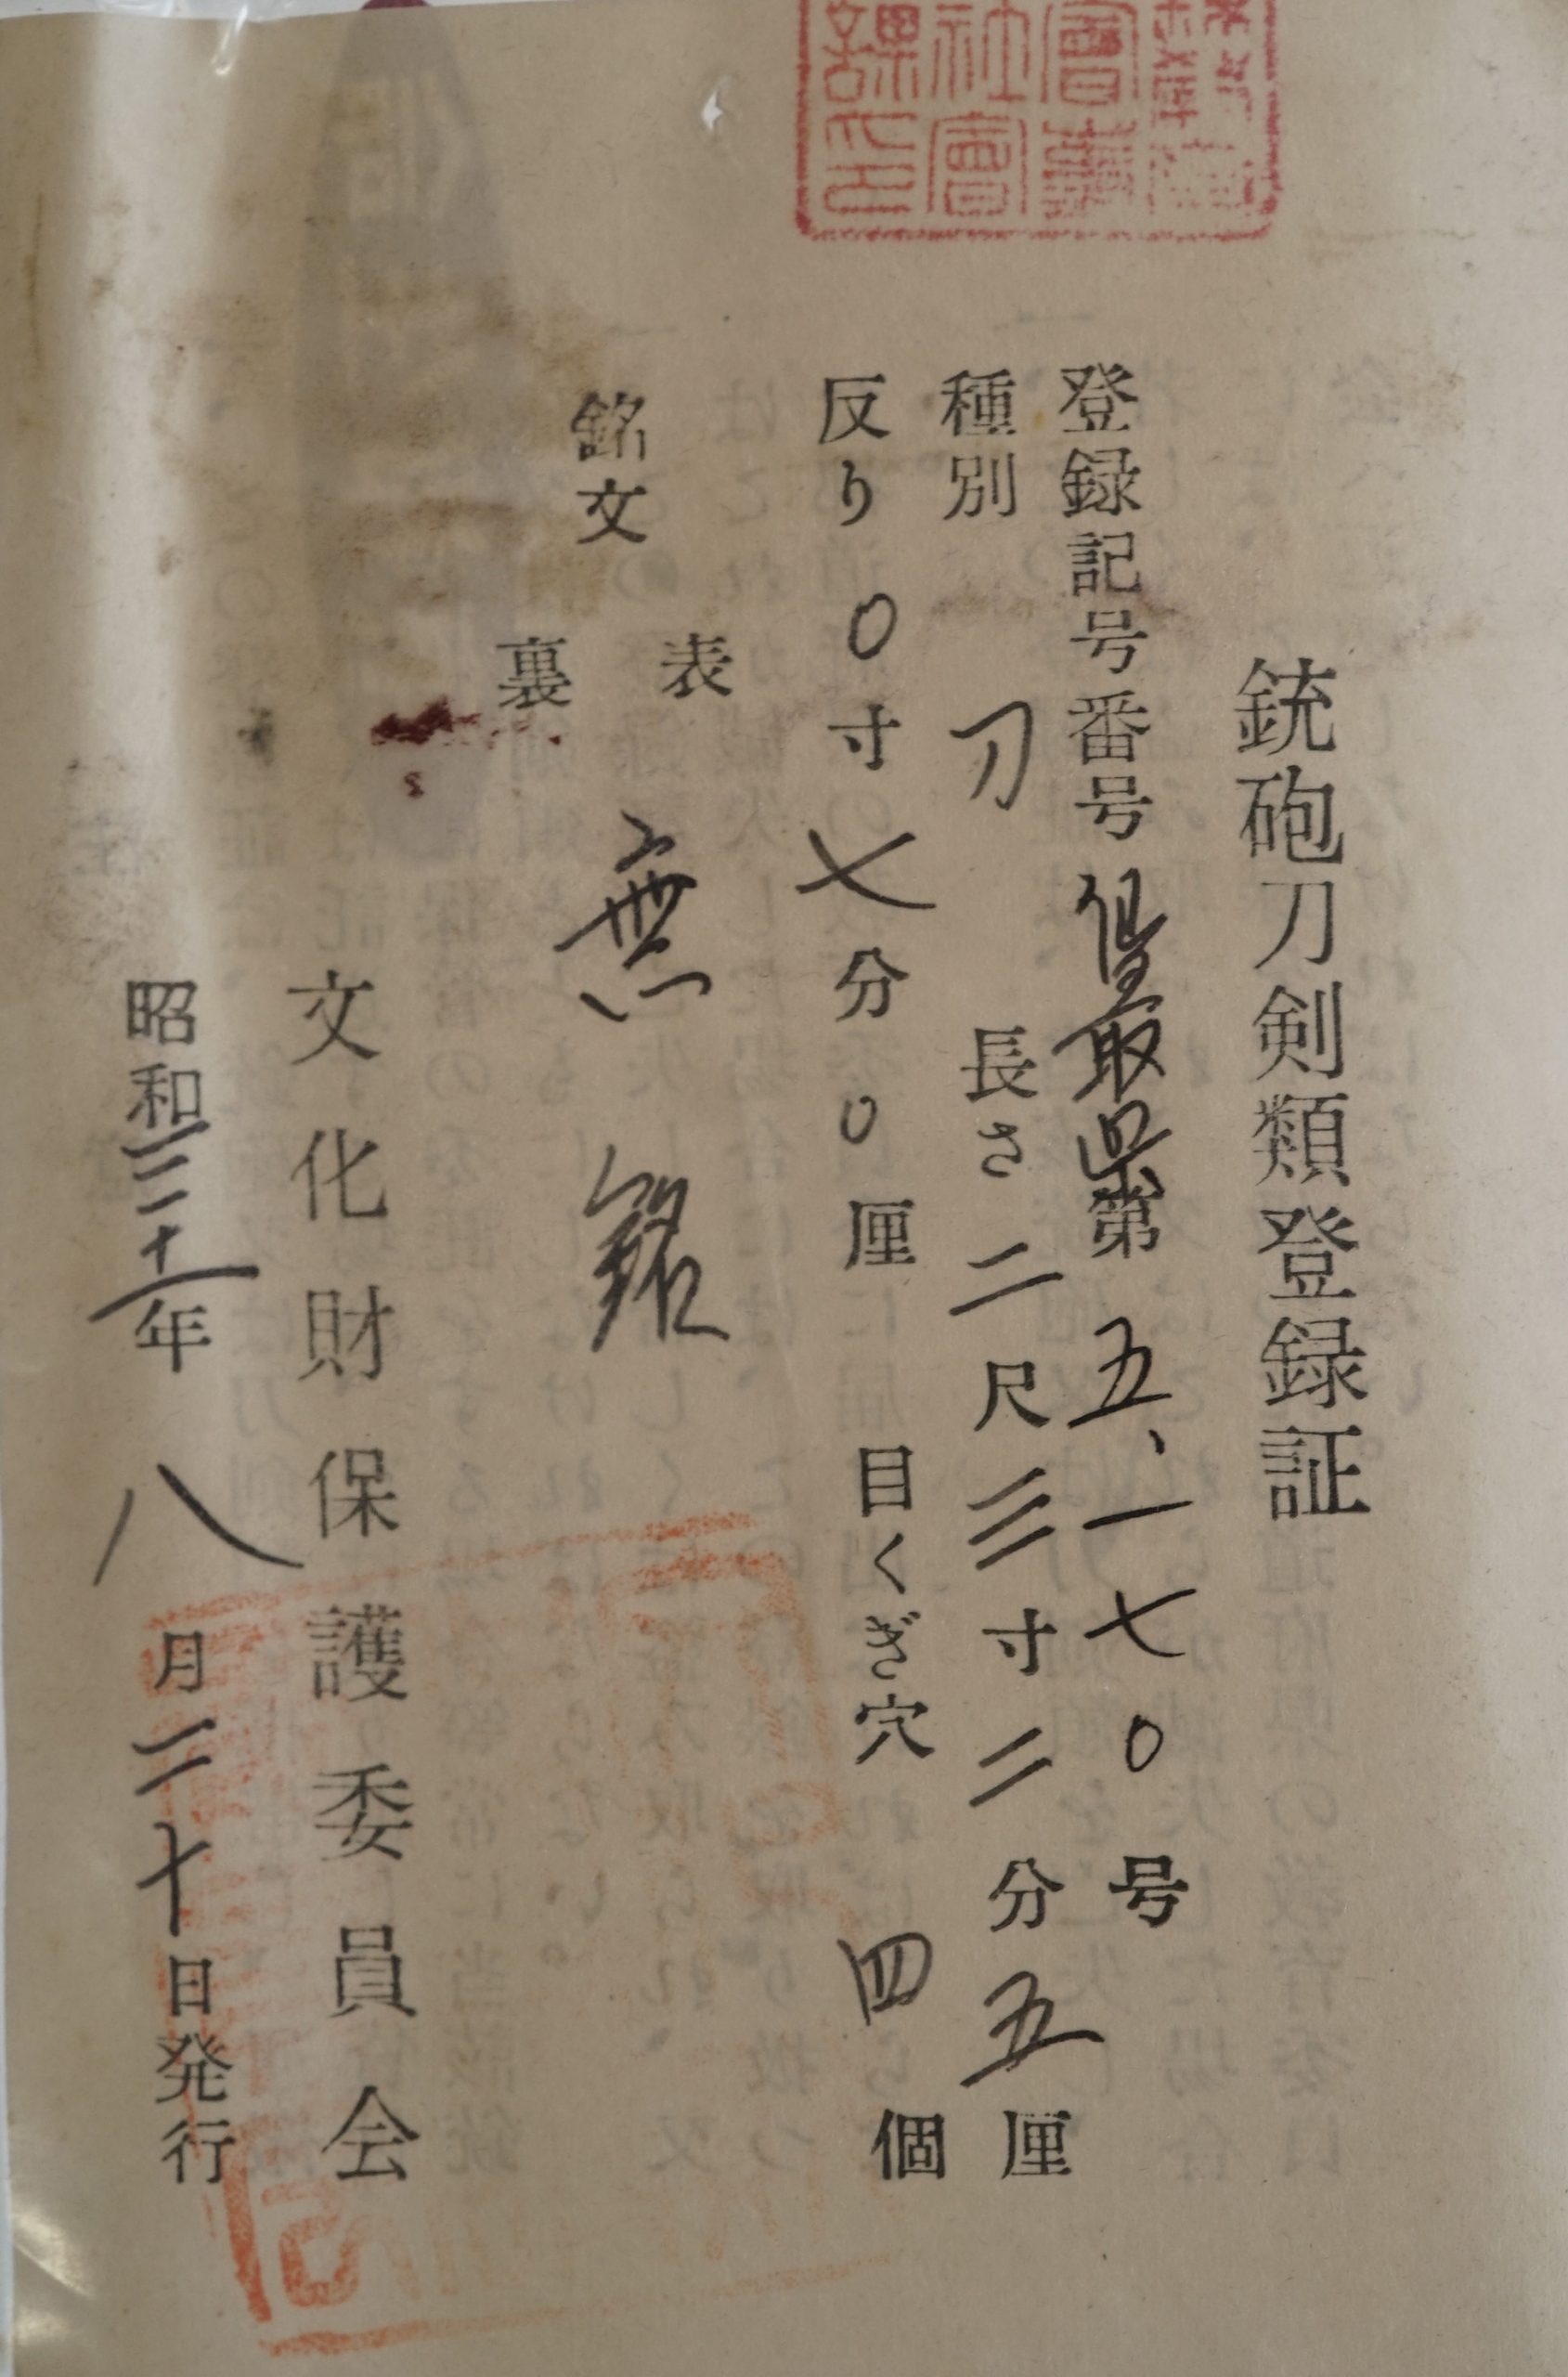 銃砲刀剣類登録証
登録記号番号 県第 五、一七〇号
種別 刀 長さ 二尺三寸二分五厘
反り 〇寸七分〇厘 目くぎ穴 四個
銘文
表 無銘
裏
文化財保護委員会
昭和三十一年八月二十日発行